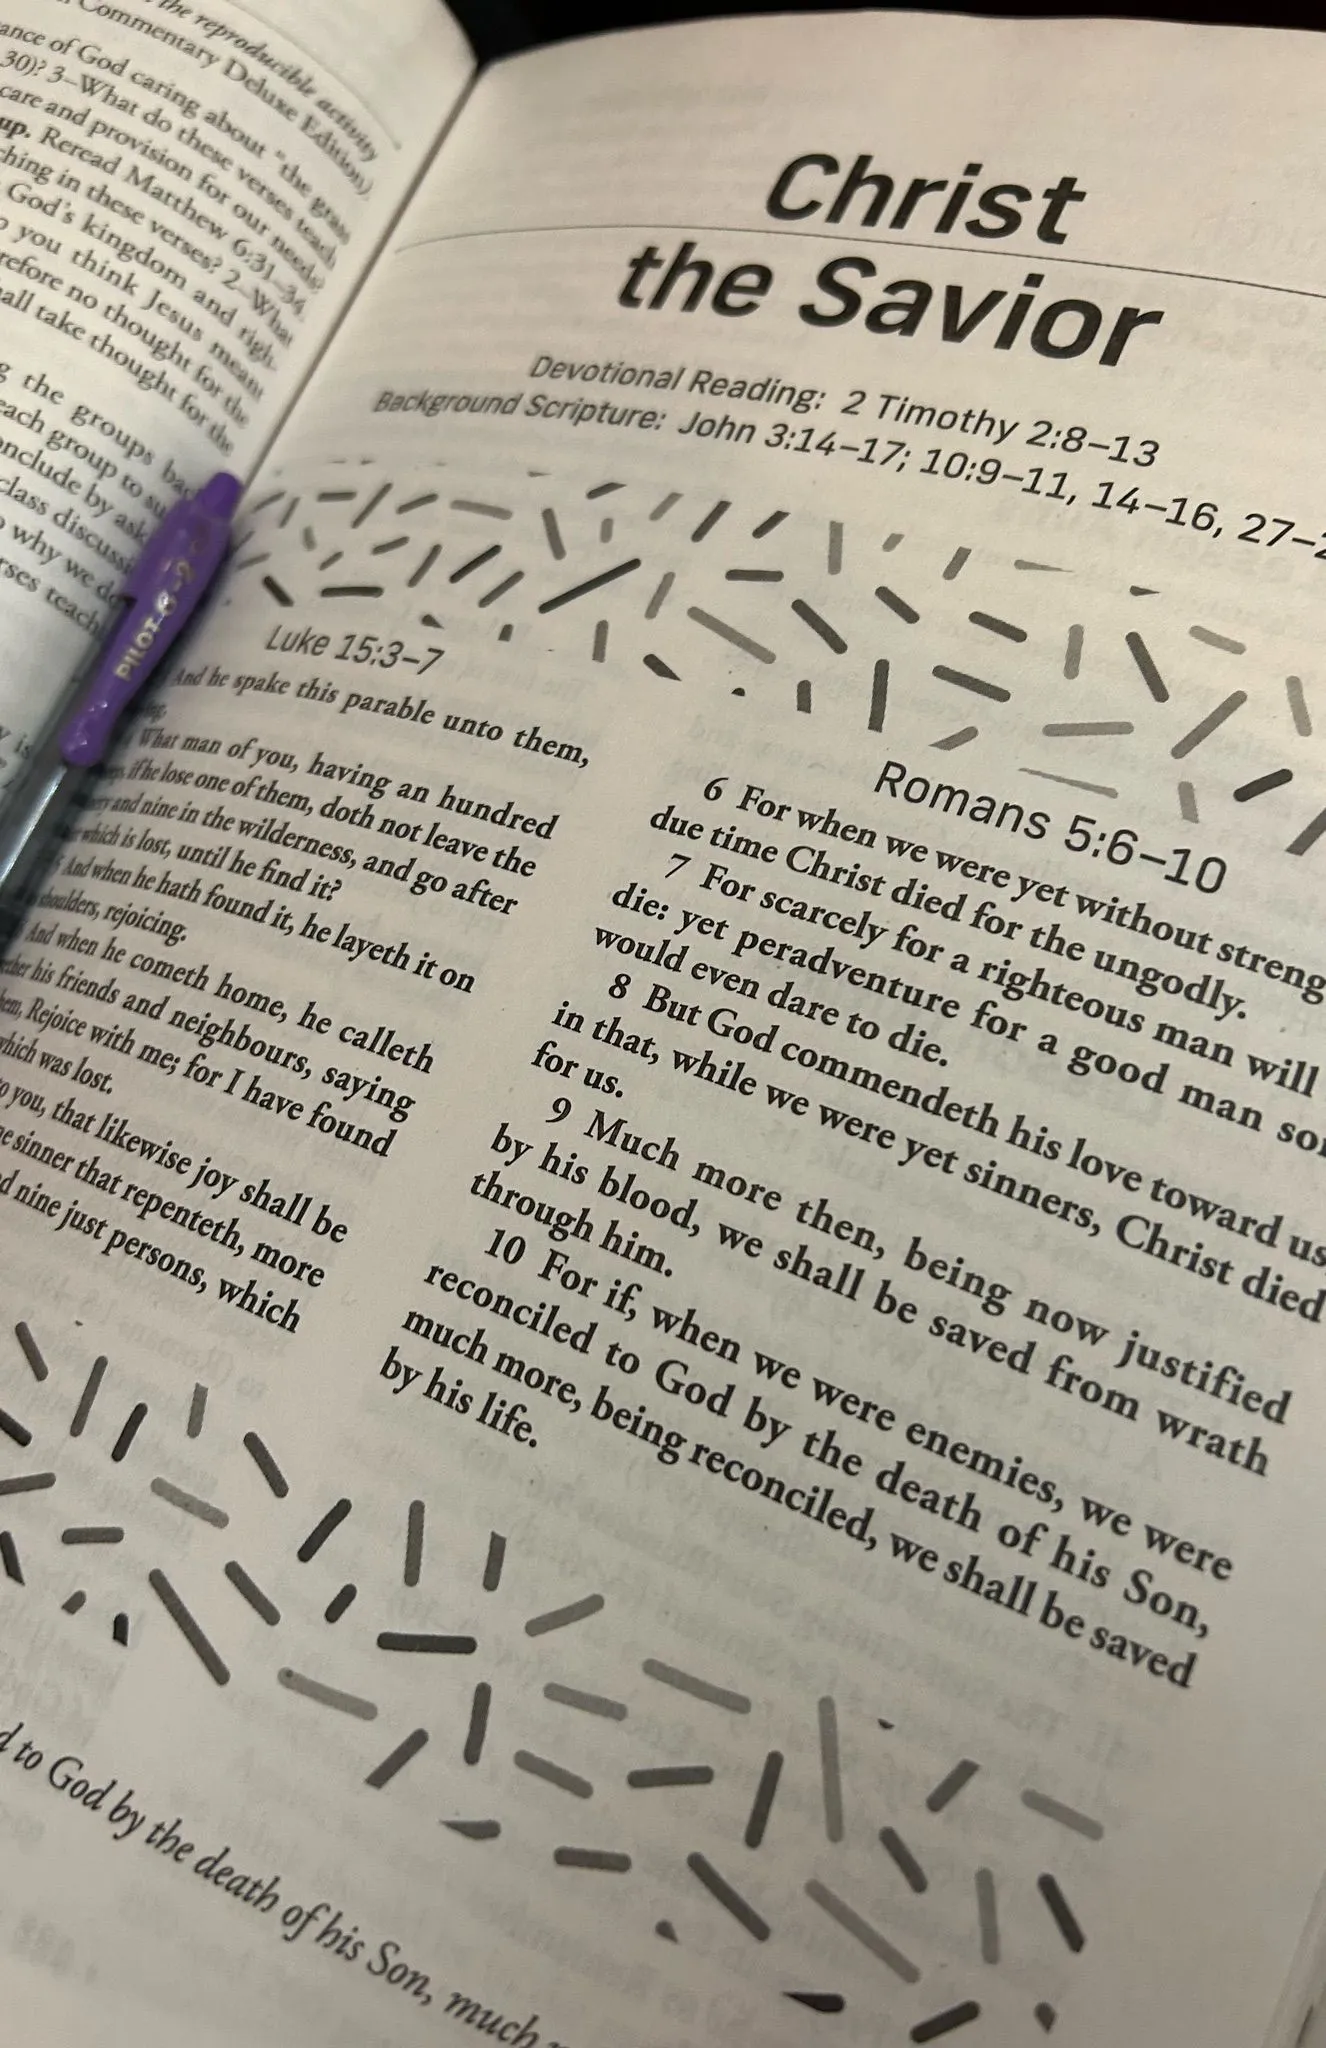 the reproducible activity
Commentary Deluxe Edition)
ance of God caring about "the grass
30)? 3–What do these verses teach
care and provision for our needs?
up. Reread Matthew 6:31–34.
ching in these verses? 2–What
God's kingdom and righ-
you think Jesus meant
refore no thought for the
all take thought for the
g the groups
each group to
onclude by
class
why we do
rses
PILOT G-2
Christ
the Savior
Devotional Reading: 2 Timothy 2:8–13
Background Scripture: John 3:14–17; 10:9–11, 14–16, 27–
Luke 15:3–7
And he spake this parable unto them,
What man of you, having an hundred
if he lose one of them, doth not leave the
and nine in the wilderness, and go after
which is lost, until he find it?
And when he hath found it, he layeth it on
shoulders, rejoicing.
And when he cometh home, he calleth
his friends and neighbours, saying
them, Rejoice with me; for I have found
which was lost.
to you, that likewise joy shall be
sinner that repenteth, more
nine just persons, which
Romans 5:6–10
6 For when we were yet without streng
due time Christ died for the ungodly.
7 For scarcely for a righteous man will
die: yet peradventure for a good man so
would even dare to die.
8 But God commendeth his love toward us,
in that, while we were yet sinners, Christ died
for us.
9 Much more then, being now justified
by his blood, we shall be saved from wrath
through him.
10 For if, when we were enemies, we were
reconciled to God by the death of his Son,
much more, being reconciled, we shall be saved
by his life.
d to God by the death of his Son, much